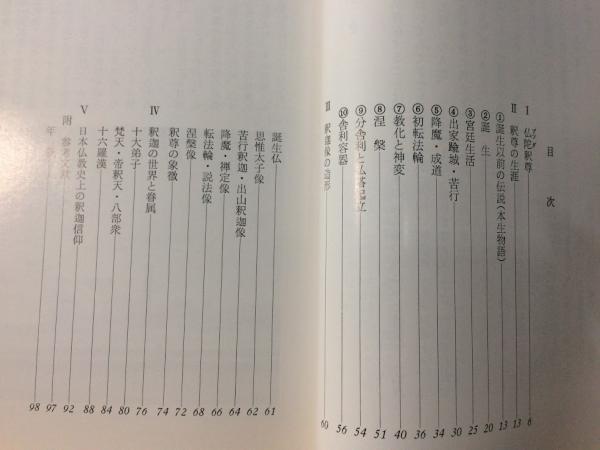 目次
Ⅰ 仏陀釈尊 6
Ⅱ 釈尊の生涯 13
①誕生以前の伝説(本生物語) 13
②誕生 20
③宮廷生活 25
④出家踰城・苦行 30
⑤降魔・成道 34
⑥初転法輪 36
⑦教化と神変 40
⑧涅槃 51
⑨分舎利と仏塔起立 54
⑩舎利容器 56
Ⅲ 釈迦像の造形 60
誕生仏 61
思惟太子像 62
苦行釈迦・出山釈迦像 64
降魔・禅定像 66
転法輪・説法像 68
涅槃像 72
釈尊の象徴 74
Ⅳ 釈迦の世界と眷属 76
十大弟子 80
梵天・帝釈天・八部衆 84
十六羅漢 88
Ⅴ 日本仏教史上の釈迦信仰 92
附 参考文献 97
年 98